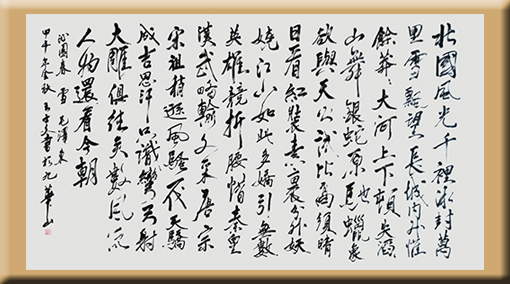 北國風光千裡冰封萬
里雪飄望長城內外惟
餘莽々大河上下頓失滔
山舞銀蛇原馳蠟象
欲與天公試比高須晴
日看紅裝素裹分外妖
嬈江山如此多嬌引無數
英雄競折腰惜秦皇
漢武略輸文采唐宗
宋祖稍遜風騷一代天驕
成吉思汗只識彎弓射
大雕俱往矣數風流
人物還看今朝
沁園春 雪 毛澤東
甲午年金秋 文書於九華山